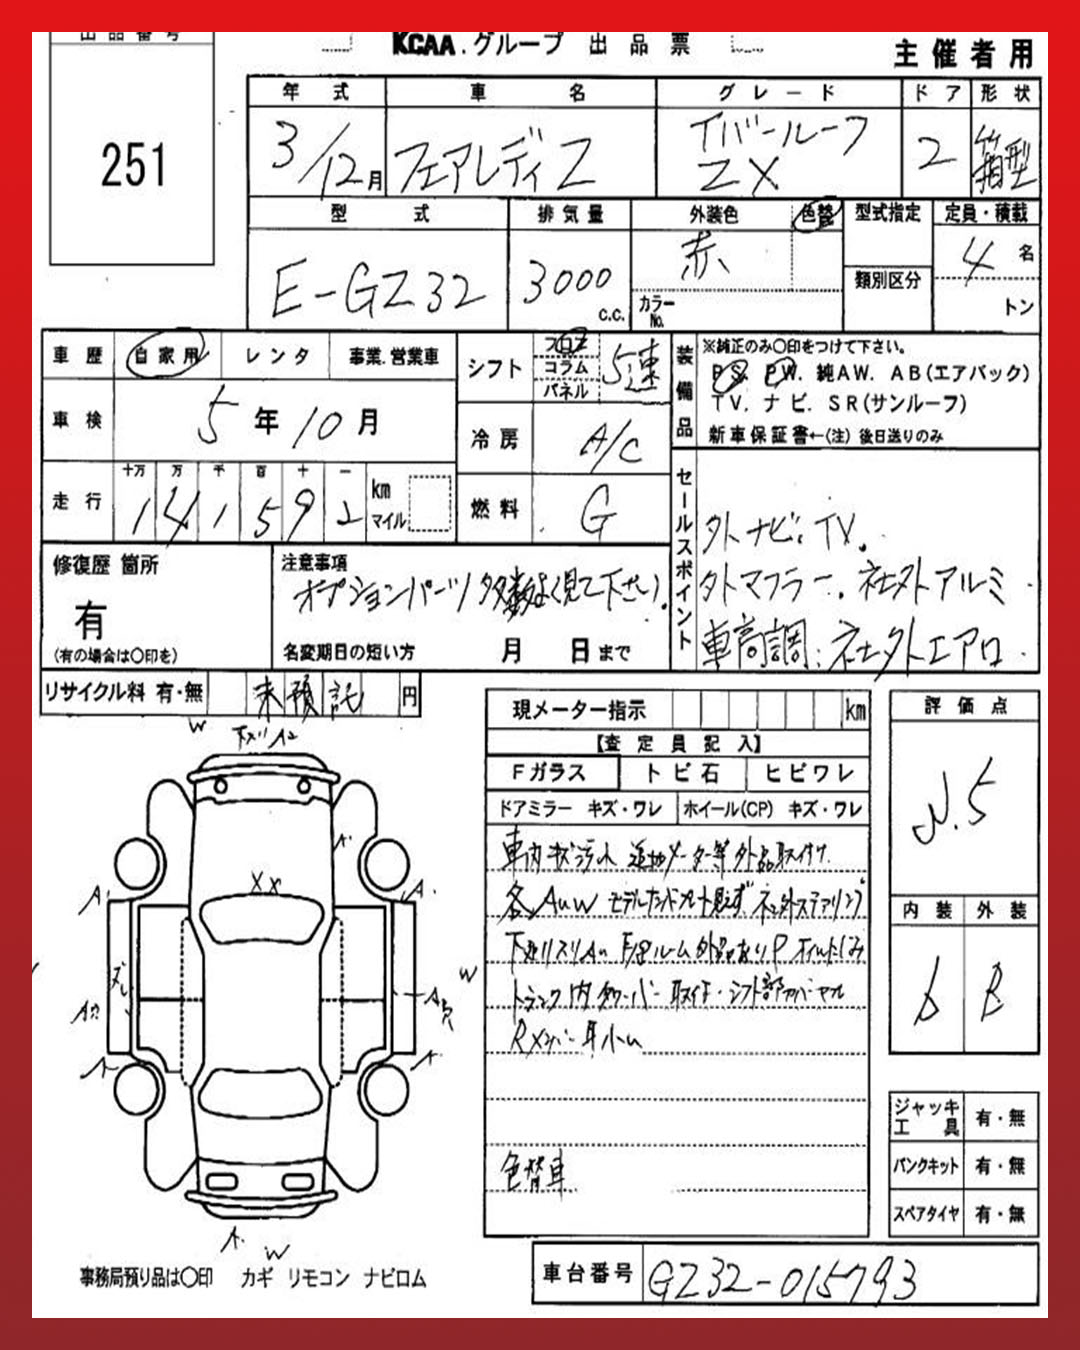 出品番号
KCAA.グループ 出品票
主催者用
251
年式 車名 グレード ドア 形状
3/12月 フェアレディZ Tバールーフ ZX 2 箱型
型式 排気量 外装色 色替 型式指定 定員・積載
E-GZ32 3000 c.c. 赤 カラーNo. 類別区分 4名 トン
車歴 自家用 レンタ 事業.営業車
車検 5年10月
走行 十万 万 千 百 十 一
141592 km マイル
シフト フロア コラム パネル 5速
冷房 A/C
燃料 G
装備品 ※純正のみ〇印をつけて下さい。
PS. PW. 純AW. AB(エアバック)
TV. ナビ. SR(サンルーフ)
新車保証書←(注) 後日送りのみ
セールスポイント
外ナビ. TV.
外マフラー. 社外アルミ
車高調. 社外エアロ.
修復歴 箇所
有
(有の場合は〇印を)
注意事項
オプションパーツ多数よく見て下さい.
名変期日の短い方 月 日まで
リサイクル料 有・無 未預託 円
現メーター指示 km
【査定員記入】
Fガラス トビ石 ヒビワレ
ドアミラー キズ・ワレ ホイール(CP) キズ・ワレ
車内キズ汚れ 追加メーター等外品取付け
各AUW
色替車
評価点
N.5
内装 外装
D B
ジャッキ工具 有・無
パンクキット 有・無
スペアタイヤ 有・無
W
XX
A
A
W
A
A
A
W
事務局預り品は〇印 カギ リモコン ナビロム
車台番号 GZ32-015793